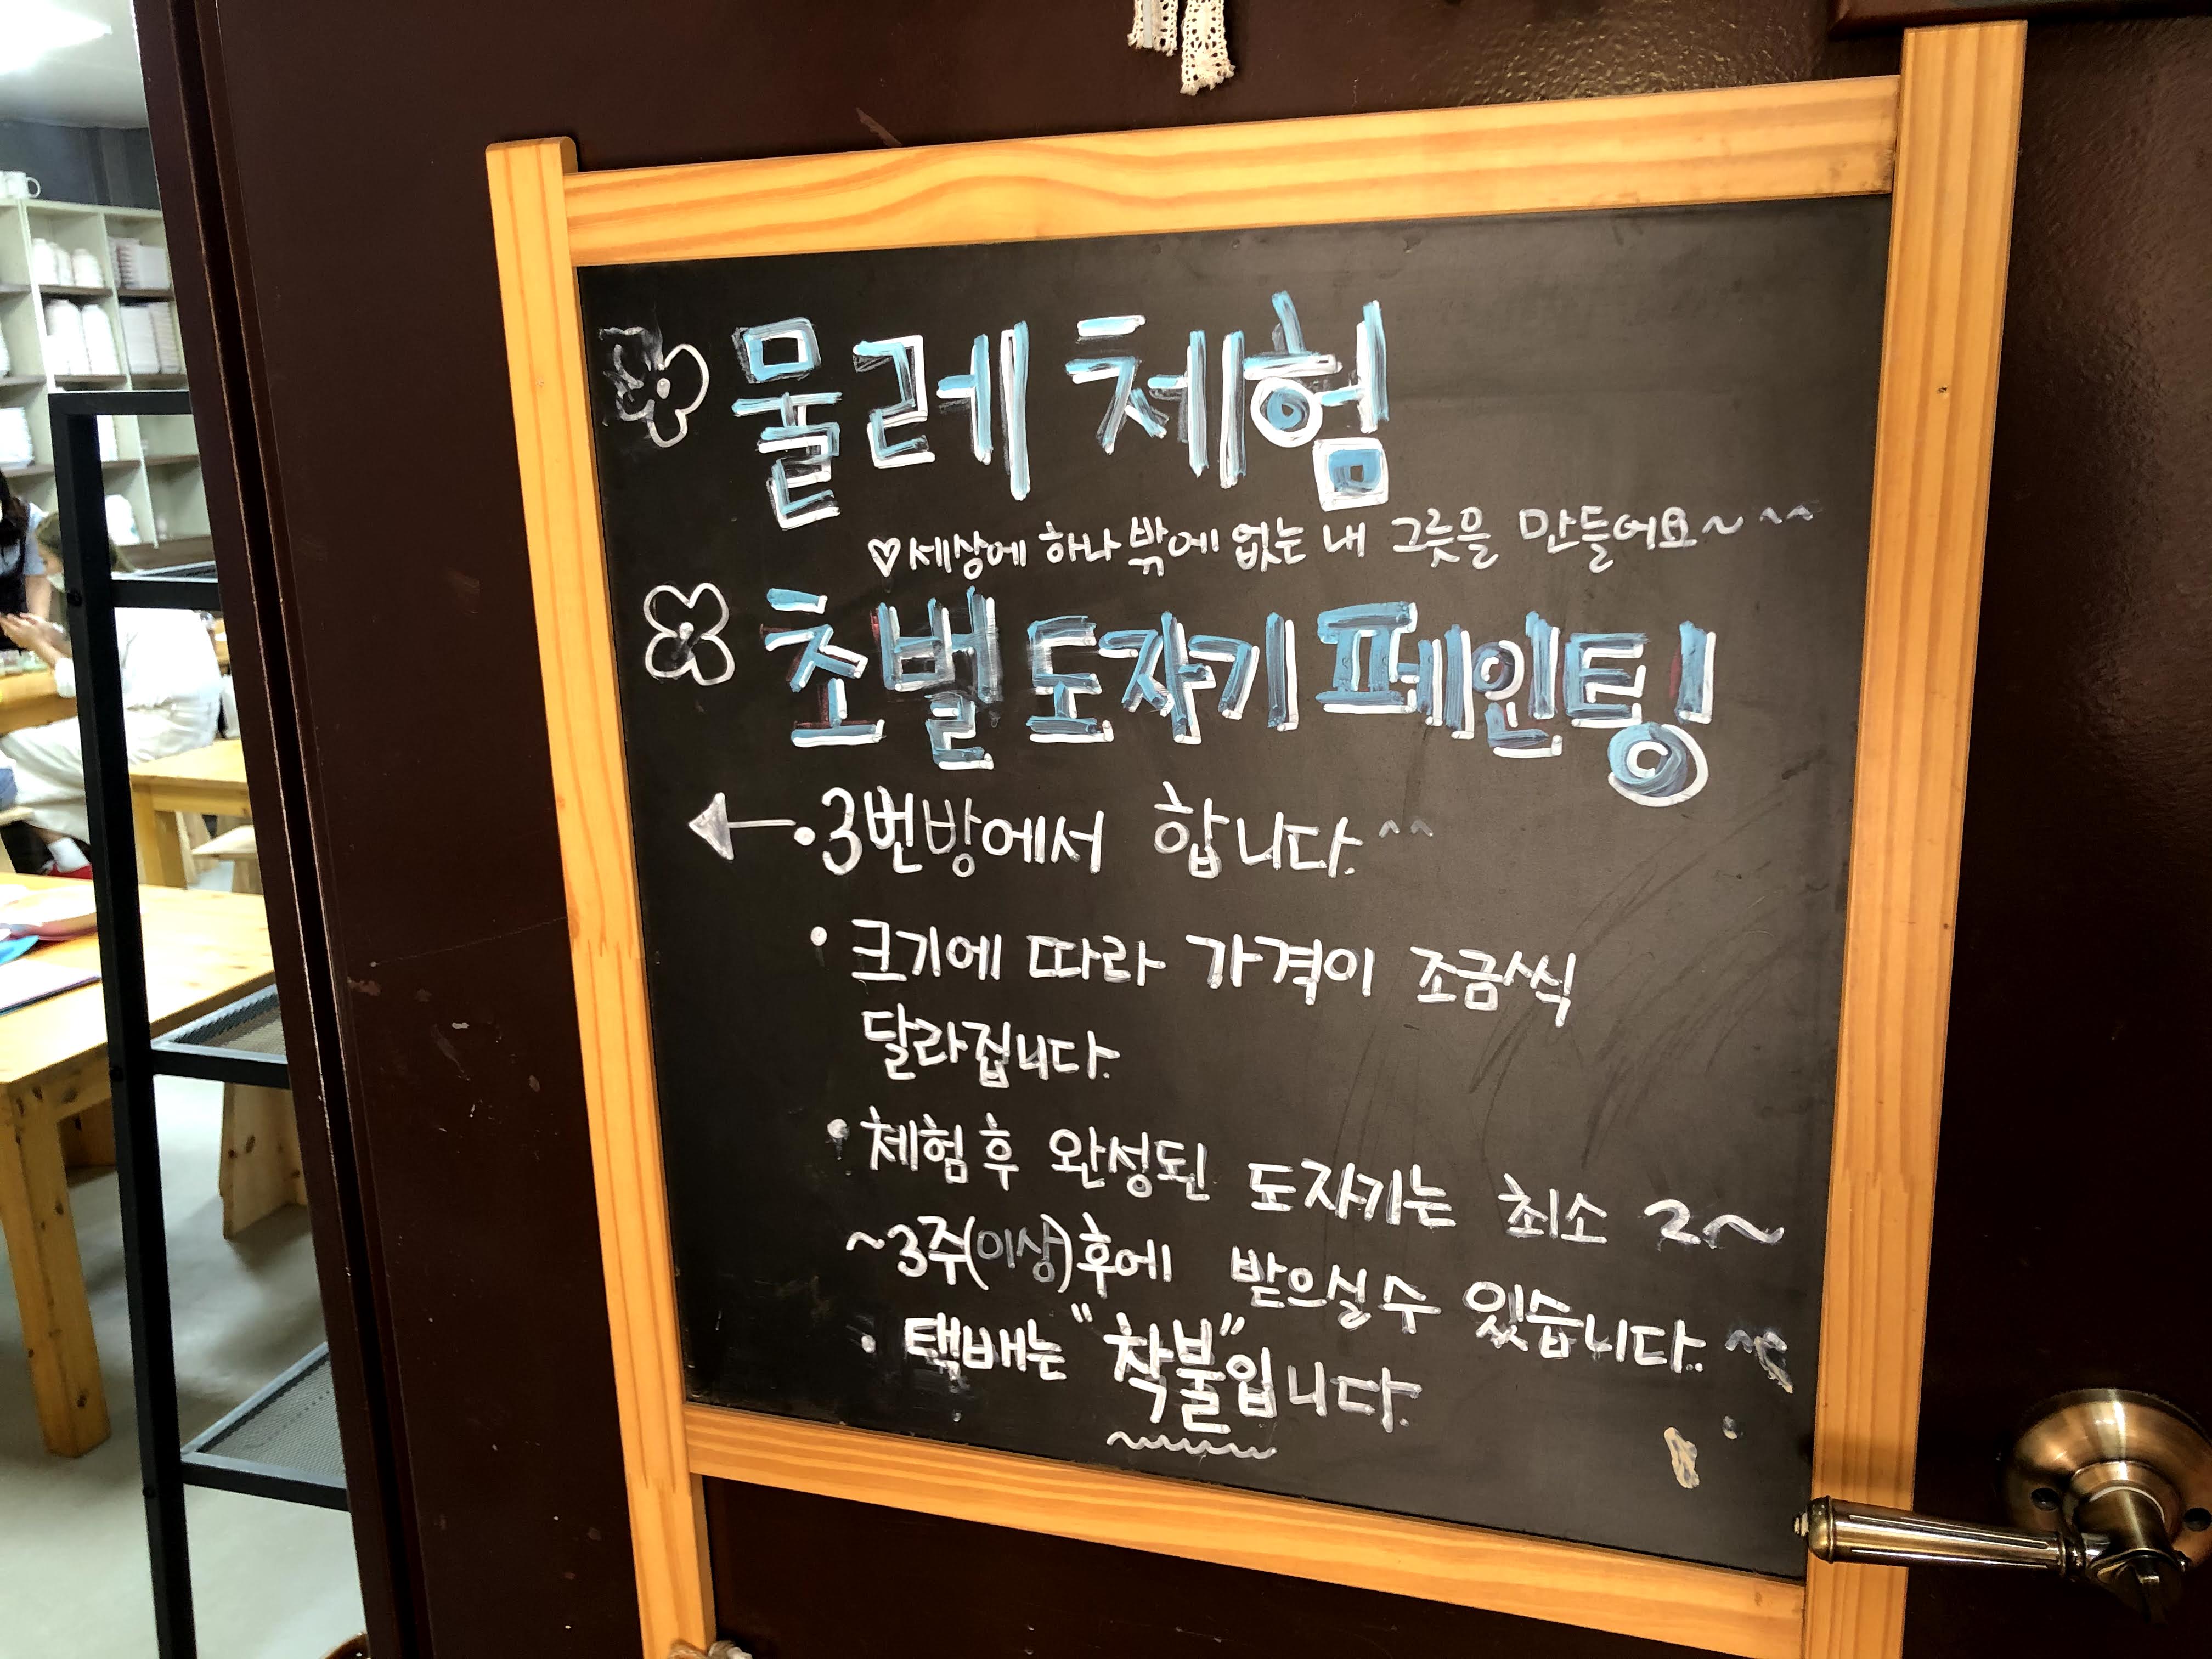 물레 체험
♡세상에 하나밖에 없는 내 그릇을 만들어요~^^
초벌 도자기 페인팅
←•3번방에서 합니다.^^
• 크기에 따라 가격이 조금씩
달라집니다.
• 체험 후 완성된 도자기는 최소 2~
~3주(이상)후에 받으실 수 있습니다.^^
• 택배는 "착불"입니다.